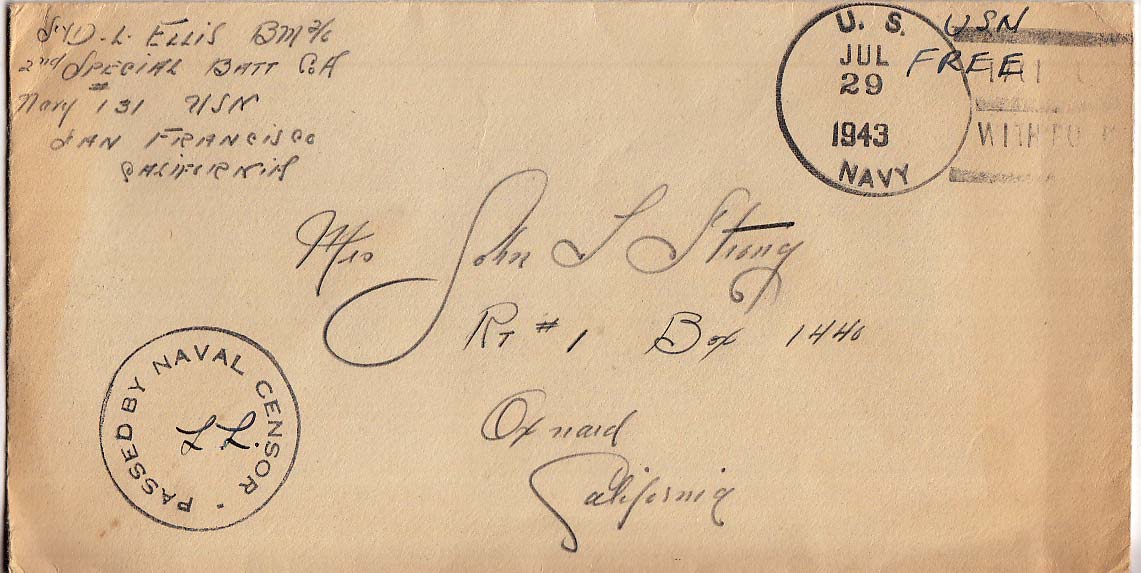 Syd. L. ELLIS BM 2/c
2nd SPECIAL BATT Co A
Navy #131 USN
SAN FRANCISCO
CALIFORNIA
U. S.
JUL
29
1943
NAVY
USN
FREE
Mrs John L Strong
RT #1 Box 1440
Oxnard
California
PASSED BY NAVAL CENSOR